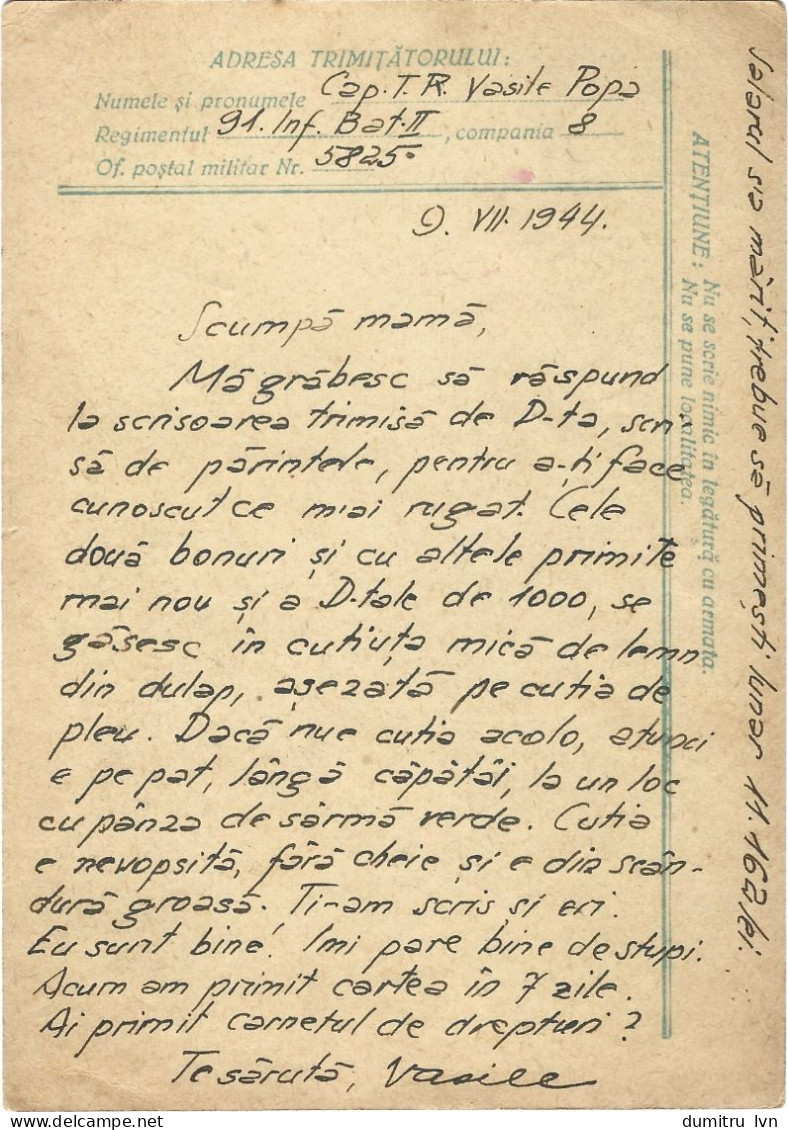 ADRESA TRIMIȚĂTORULUI:
Numele și pronumele Cap. T.R. Vasile Popa
Regimentul 91. Inf. Bat. II, compania 8
Of. poștal militar Nr. 5825.
9. VII. 1944.
Scumpă mamă,
Mă grăbesc să răspund
la scrisoarea trimisă de D-ta, scri
să de părintele, pentru a-ți face
cunoscut ce m-ai rugat. Cele
două bonuri și cu altele primite
mai nou și a D-tale de 1000, se
găsesc în cutiuța mică de lemn
din dulap, așezată pe cutia de
pleu. Dacă nu e cutia acolo, atunci
e pe pat, lângă căpătâi, la un loc
cu pânza de sârmă verde. Cutia
e nevopsită, fără cheie și e din scân-
dură groasă. Ti-am scris și eri.
Eu sunt bine! Imi pare bine de stupi.
Acum am primit cartea în 7 zile.
Ai primit carnetul de drepturi?
Te sărută, Vasile
ATENȚIUNE: Nu se scrie nimic în legătură cu armata.
Nu se pune localitatea.
Salarul s'a mărit, trebue să primești lunar 11.162 lei.
dumitru lvn